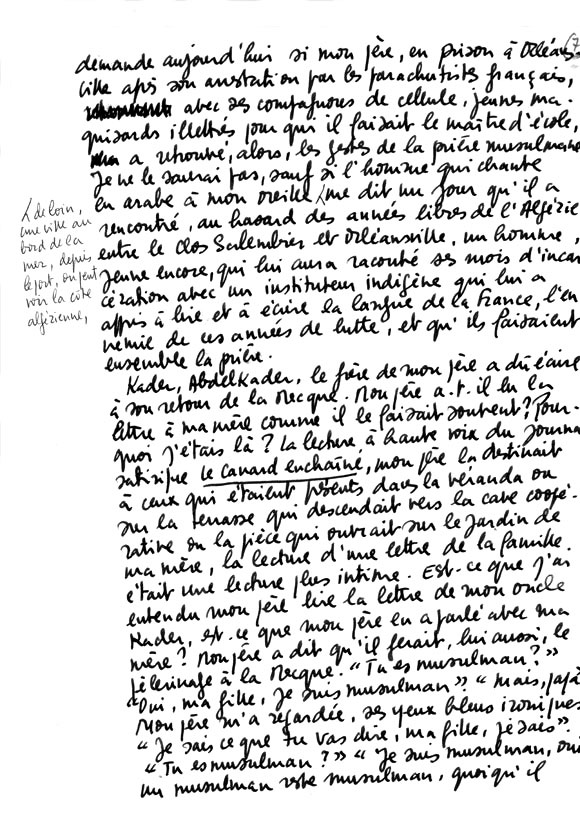 7
demande aujourd'hui si mon père, en prison à Orléans-
ville après son arrestation par les parachutistes français,
avec ses compagnons de cellule, jeunes ma-
quisards illettrés pour qui il faisait le maître d'école,
a retrouvé, alors, les gestes de la prière musulmane
Je ne le saurai pas, sauf si l'homme qui chante
en arabe à mon oreille me dit un jour qu'il a
rencontré, au hasard des années libres de l'Algérie
entre le Clos Salembier et Orléansville, un homme,
jeune encore, qui lui aura raconté ses mois d'incar
cération avec un instituteur indigène qui lui a
appris à lire et à écrire la langue de la France, l'en
nemie de ces années de lutte, et qu'ils faisaient
ensemble la prière.
de loin,
une ville au
bord de la
mer, depuis
le port, on peut
voir la côte
algérienne,
Kader, AbdelKader, le frère de mon père a dû écrire
à son retour de la Mecque. Mon père a-t-il lu la
lettre à ma mère comme il le faisait souvent? Pour-
quoi j'étais là? La lecture à haute voix du journa
satirique Le Canard enchaîné, mon père la destinait
à ceux qui étaient présents dans la véranda ou
sur la terrasse qui descendait vers la cave coopé-
rative ou la pièce qui ouvrait sur le jardin de
ma mère, la lecture d'une lettre de la famille.
c'était une lecture plus intime. Est-ce que j'ai
entendu mon père lire la lettre de mon oncle
Kader, est-ce que mon père en a parlé avec ma
mère? Mon père a dit qu'il ferait, lui aussi, le
pèlerinage à la Mecque. "Tu es musulman?"
"Oui, ma fille, je suis musulman" "Mais, papa
Mon père m'a regardée, ses yeux bleus ironiques
"Je sais ce que tu vas dire, ma fille, je sais".
"Tu es musulman?" "Je suis musulman, oui
un musulman reste musulman, quoiqu'il